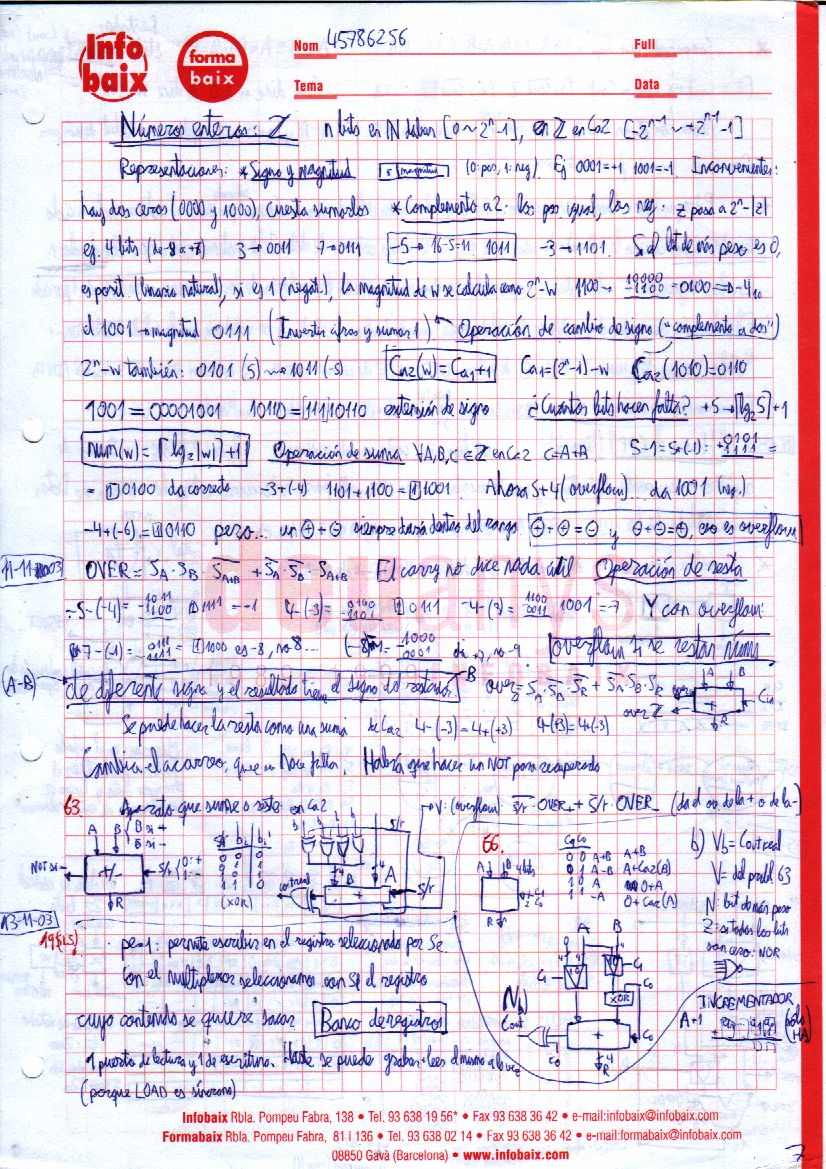 Info baix
forma baix
Nom 45786256
Full
Tema
Data
Números enteros: Z n bits en N daban [0 ~ 2^n-1], en Z en Ca2 [-2^n-1 ~ +2^n-1 -1]
Representaciones: * Signo y magnitud s magnitud (0: pos, 1: neg) Ej 0001=+1 1001=-1. Inconvenientes:
hay dos ceros (0000 y 1000), cuesta sumarlos * Complemento a 2: los pos igual, los neg: z pasa a 2^n-|z|
ej. 4 bits (de -8 a +7) 3→0011 7→0111 -5→16-5=11 1011 -3→1101. Si el bit de más peso es 0,
es posit. (binario natural), si es 1 (negat.), la magnitud de w se calcula como 2^n-w 1100→ 10000 -1100 =0100 → -4₁₀
el 1001→magnitud 0111 (Invertir cifras y sumar 1) Operación de cambio de signo ("complemento a dos")
2^n-w también: 0101 (5) → 1011 (-5) Ca2(w)=Ca1+1 Ca1=(2^n-1)-w Ca2(1010)=0110
1001=00001001 10110=[111]10110 extensión de signo ¿Cuántos bits hacen falta? +5→⌈lg₂5⌉+1
num(w)=⌈lg₂|w|⌉+1 Operación de suma: ∀A,B,C∈Z en Ca2 C=A+B 5-1=5+(-1)= +0101 1111 =
= [1]0100 da correcto -3+(-4) 1101+1100=[1]1001. Ahora 5+4 (overflow) da 1001 (neg.)
-4+(-6)=[1]0110 pero... un ⊕+⊖ siempre dará dentro del rango ⊕+⊕=⊖ y ⊖+⊖=⊕, eso es overflow
11-11-2003 OVER = SA·SB·S̅A+B + S̅A·S̅B·SA+B El carry no dice nada útil Operación de resta
-5-(-4)= -1011 1100 [1]1111=-1 4-(-3)= -0100 1101 [1]0111 -4-(3)= 1100 0011 1001=-7 Y con overflow:
7-(-1)= 0111 1111 = [1]1000 es -8, no 8... (-8)-1= -1000 0001 da +7, no -9 overflow si se restan núms
(A-B) de diferente signo y el resultado tiene el signo del restando B over=S̅A·SB·SR + SA·S̅B·S̅R
A B over Z Cin R
Se puede hacer la resta como una suma de Ca2 4-(-3)=4+(+3) 4-(+3)=4+(-3)
Cambia el acarreo, que no hace falta. Habrá que hacer un NOT para recuperarlo
63. Aparato que sume o reste en Ca2 V: (overflow) s̅/̅r̅·OVER+ + s/r·OVER- (da el ov. de la + o de la -)
A B { B si + B̅ si - NOT si - +/- s/r {0:+ 1:- R
s/r bi bi' 0 0 0 0 1 1 1 0 1 1 1 0 (XOR)
s/r 4 B 4 A cout real + s/r R
66. A B 4 bits C1 C0 R
C1 C0 0 0 A+B A+B 0 1 A-B A+Ca2(B) 1 0 A 0+A 1 1 -A 0+Ca2(A)
b) Vb = Cout real
V = del probl 63
N: bit de más peso
Z: si todos los bits
son cero: NOR
A B 4 C1 C1 C0 XOR Cout C0 + C0 4 R
INCREMENTADOR
A+1 (sólo HA)
13-11-03
19 (LS) pe=1: permite escribir en el registro seleccionado por Se.
Con el multiplexor seleccionamos con Sl el registro
cuyo contenido se quiere sacar Banco de registros
1 puerto de lectura y 1 de escritura. Hasta se puede grabar+leer el mismo a la vez
(porque LOAD es síncrono)
Infobaix Rbla. Pompeu Fabra, 138 • Tel. 93 638 19 56* • Fax 93 638 36 42 • e-mail:infobaix@infobaix.com
Formabaix Rbla. Pompeu Fabra, 81 I 136 • Tel. 93 638 02 14 • Fax 93 638 36 42 • e-mail:formabaix@infobaix.com
08850 Gavà (Barcelona) • www.infobaix.com
7